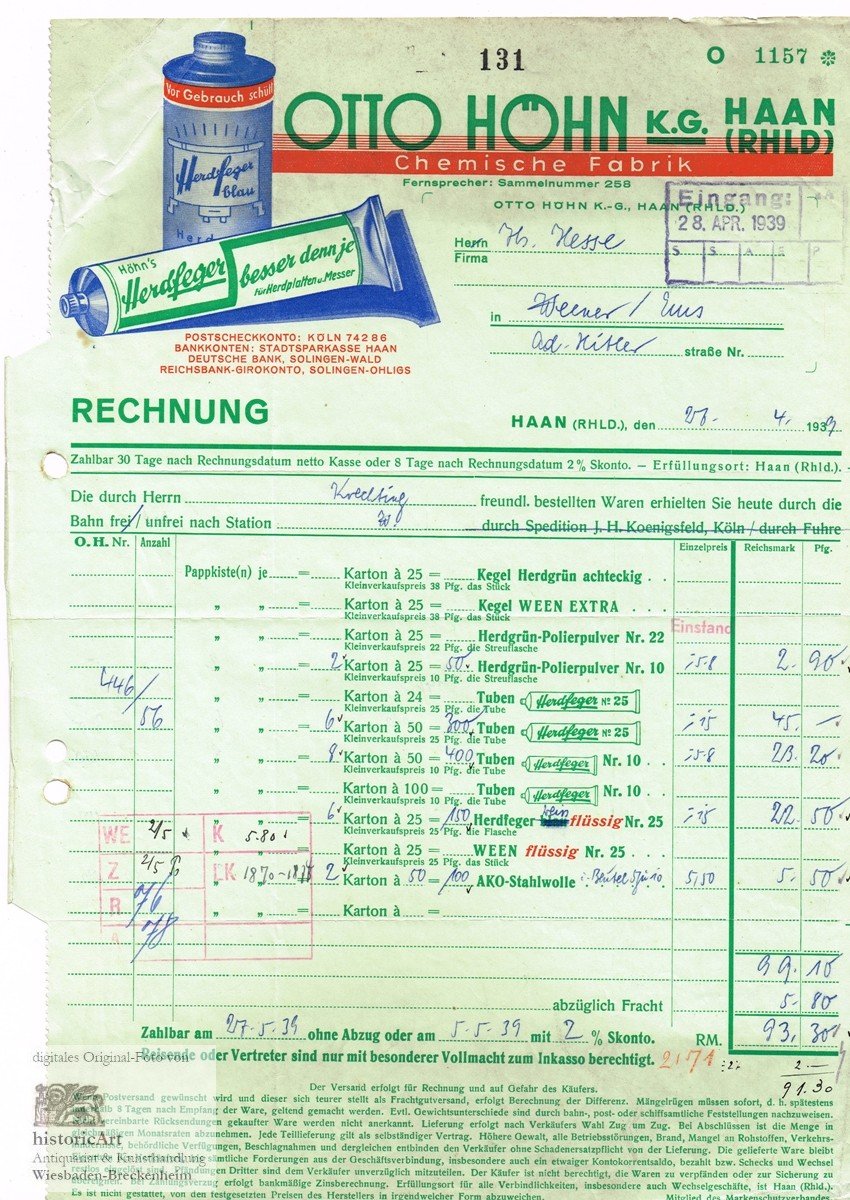 131
O 1157 ❊
Vor Gebrauch schütt
OTTO HÖHN K.G. HAAN (RHLD)
Chemische Fabrik
Herdfeger blau
Fernsprecher: Sammelnummer 258
OTTO HÖHN K.-G., HAAN (RHLD.)
Eingang:
28. APR. 1939
S S A E P
Höhn's
Herdfeger besser denn je
für Herdplatten u. Messer
Herrn
Firma
Hesse
in Weener / Ems
Ad. Hitler straße Nr.
POSTSCHECKKONTO: KÖLN 74286
BANKKONTEN: STADTSPARKASSE HAAN
DEUTSCHE BANK, SOLINGEN-WALD
REICHSBANK-GIROKONTO, SOLINGEN-OHLIGS
RECHNUNG
HAAN (RHLD.), den 4. 1939
Zahlbar 30 Tage nach Rechnungsdatum netto Kasse oder 8 Tage nach Rechnungsdatum 2% Skonto. – Erfüllungsort: Haan (Rhld.). –
Die durch Herrn Krechting freundl. bestellten Waren erhielten Sie heute durch die
Bahn frei / unfrei nach Station durch Spedition J. H. Koenigsfeld, Köln / durch Fuhre
O. H. Nr. Anzahl Einzelpreis Reichsmark Pfg.
Pappkiste(n) je = Karton à 25 = Kegel Herdgrün achteckig . .
Kleinverkaufspreis 38 Pfg. das Stück
„ „ = Karton à 25 = Kegel WEEN EXTRA . . .
Kleinverkaufspreis 38 Pfg. das Stück
„ „ = Karton à 25 = Herdgrün-Polierpulver Nr. 22 Einstand
Kleinverkaufspreis 22 Pfg. die Streuflasche
„ „ = 2 Karton à 25 = 50 Herdgrün-Polierpulver Nr. 10 -.58 2. 90
Kleinverkaufspreis 10 Pfg. die Streuflasche
446/56
„ „ = Karton à 24 = Tuben Herdfeger No 25
Kleinverkaufspreis 25 Pfg. die Tube
„ „ = 6 Karton à 50 = 300 Tuben Herdfeger No 25 -.15 45. –
Kleinverkaufspreis 25 Pfg. die Tube
„ „ = 8 Karton à 50 = 400 Tuben Herdfeger Nr. 10 -.58 23. 20
Kleinverkaufspreis 10 Pfg. die Tube
„ „ = Karton à 100 = Tuben Herdfeger Nr. 10
Kleinverkaufspreis 10 Pfg. die Tube
„ „ = 6 Karton à 25 = 150 Herdfeger flüssig Nr. 25 -.15 22. 50
Kleinverkaufspreis 25 Pfg. die Flasche
„ „ = Karton à 25 = WEEN flüssig Nr. 25 . . .
Kleinverkaufspreis 25 Pfg. das Stück
„ „ = 2 Karton à 50 = 100 AKO-Stahlwolle Beutel 5,50 5. 50
„ „ Karton à =
WE 2/5 K 5.80
Z 2/5 LK 1870-1878
R 76
A 78
99. 10
abzüglich Fracht 5. 80
Zahlbar am 27.5.39 ohne Abzug oder am 5.5.39 mit 2 % Skonto. RM. 93. 30
Reisende oder Vertreter sind nur mit besonderer Vollmacht zum Inkasso berechtigt. 2171
2 —
91.30
digitales Original-Foto von
historicArt
Antiquariat & Kunsthandlung
Wiesbaden-Breckenheim
Der Versand erfolgt für Rechnung und auf Gefahr des Käufers.
Postversand gewünscht wird und dieser sich teurer stellt als Frachtgutversand, erfolgt Berechnung der Differenz. Mängelrügen müssen sofort, d. h. spätestens
8 Tagen nach Empfang der Ware, geltend gemacht werden. Evtl. Gewichtsunterschiede sind durch bahn-, post- oder schiffsamtliche Feststellungen nachzuweisen.
Rücksendungen gekaufter Ware werden nicht anerkannt. Lieferung erfolgt nach Verkäufers Wahl Zug um Zug. Bei Abschlüssen ist die Menge in
Monatsraten abzunehmen. Jede Teillieferung gilt als selbständiger Vertrag. Höhere Gewalt, alle Betriebsstörungen, Brand, Mangel an Rohstoffen, Verkehrs-
behördliche Verfügungen, Beschlagnahmen und dergleichen entbinden den Verkäufer ohne Schadenersatzpflicht von der Lieferung. Die gelieferte Ware bleibt
sämtliche Forderungen aus der Geschäftsverbindung, insbesondere auch ein etwaiger Kontokorrentsaldo, bezahlt bzw. Schecks und Wechsel
eingelöst sind. Pfändungen Dritter sind dem Verkäufer unverzüglich mitzuteilen. Der Käufer ist nicht berechtigt, die Waren zu verpfänden oder zur Sicherung zu
erfolgt bankmäßige Zinsberechnung. Erfüllungsort für alle Verbindlichkeiten, insbesondere auch Wechselgeschäfte, ist Haan (Rhld.)
Es ist nicht gestattet, von den festgesetzten Preisen des Herstellers in irgendwelcher Form abzuweichen. Mitglied des Markenschutzverbandes